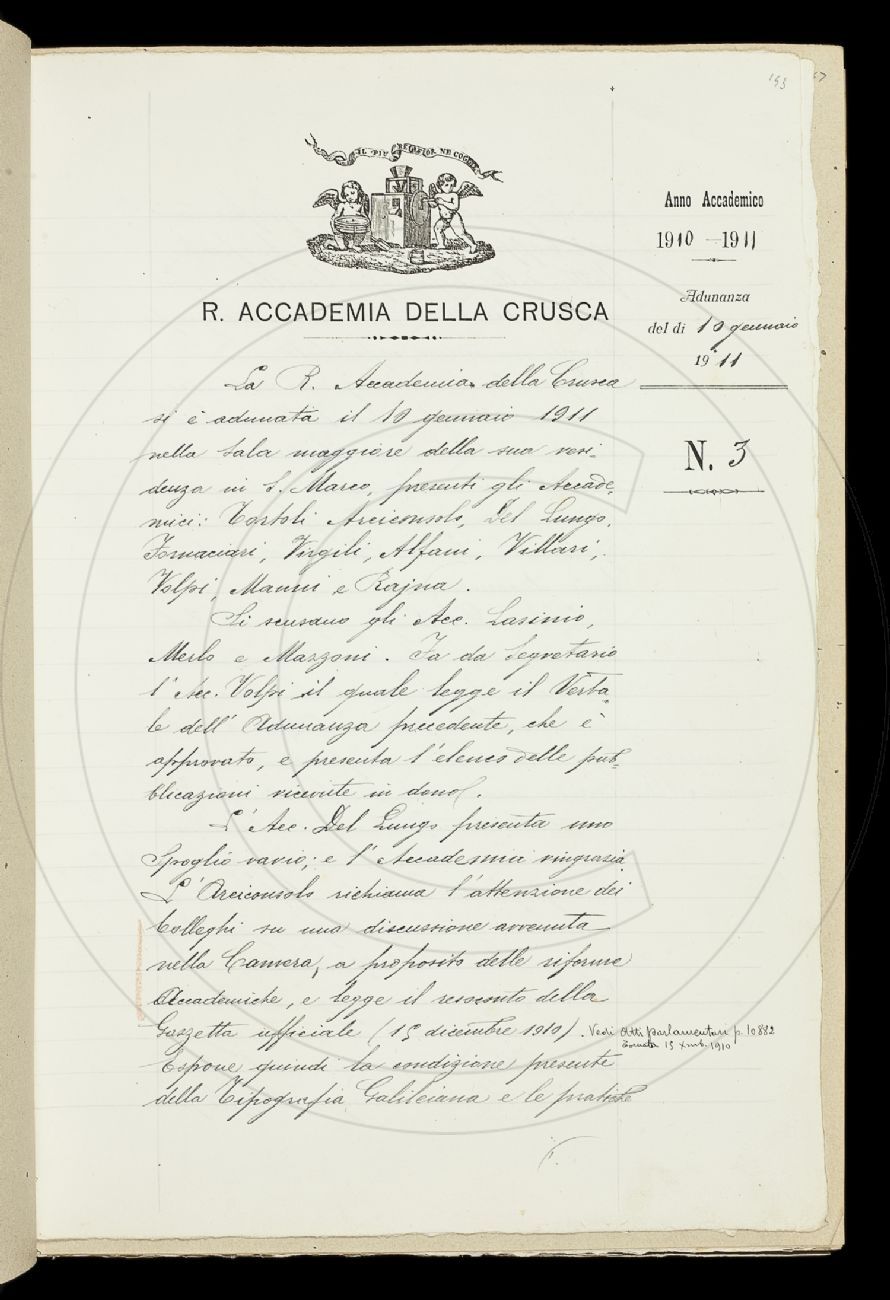 193
67
IL PIÙ BEL FIOR NE COGLIE
R. ACCADEMIA DELLA CRUSCA
Anno Accademico
1910 - 1911
Adunanza
del dì 10 gennaio
1911
N. 3
La R. Accademia della Crusca
si è adunata il 10 gennaio 1911
nella Sala maggiore della sua resi-
denza in S. Marco, presenti gli Accade-
mici: Tortoli Arciconsolo, Del Lungo,
Fornaciari, Virgili, Alfani, Villari,
Volpi, Manni e Rajna.
Si scusano gli Acc. Lasinio,
Merlo e Mazzoni. Fa da Segretario
l'Acc. Volpi il quale legge il Verba
le dell'Adunanza precedente, che è
approvato, e presenta l'elenco delle pub-
blicazioni ricevute in dono.
L'Acc. Del Lungo presenta uno
Spoglio vario; e l'Accademia ringrazia.
L'Arciconsolo richiama l'attenzione dei
Colleghi su una discussione avvenuta
nella Camera, a proposito delle riforme
Accademiche, e legge il resoconto della
Gazzetta ufficiale (15 dicembre 1910). Vedi Atti parlamentari p. 10882
Tornata 15 Xmb. 1910
Espone quindi la condizione presente
della Tipografia Galileiana e le pratiche